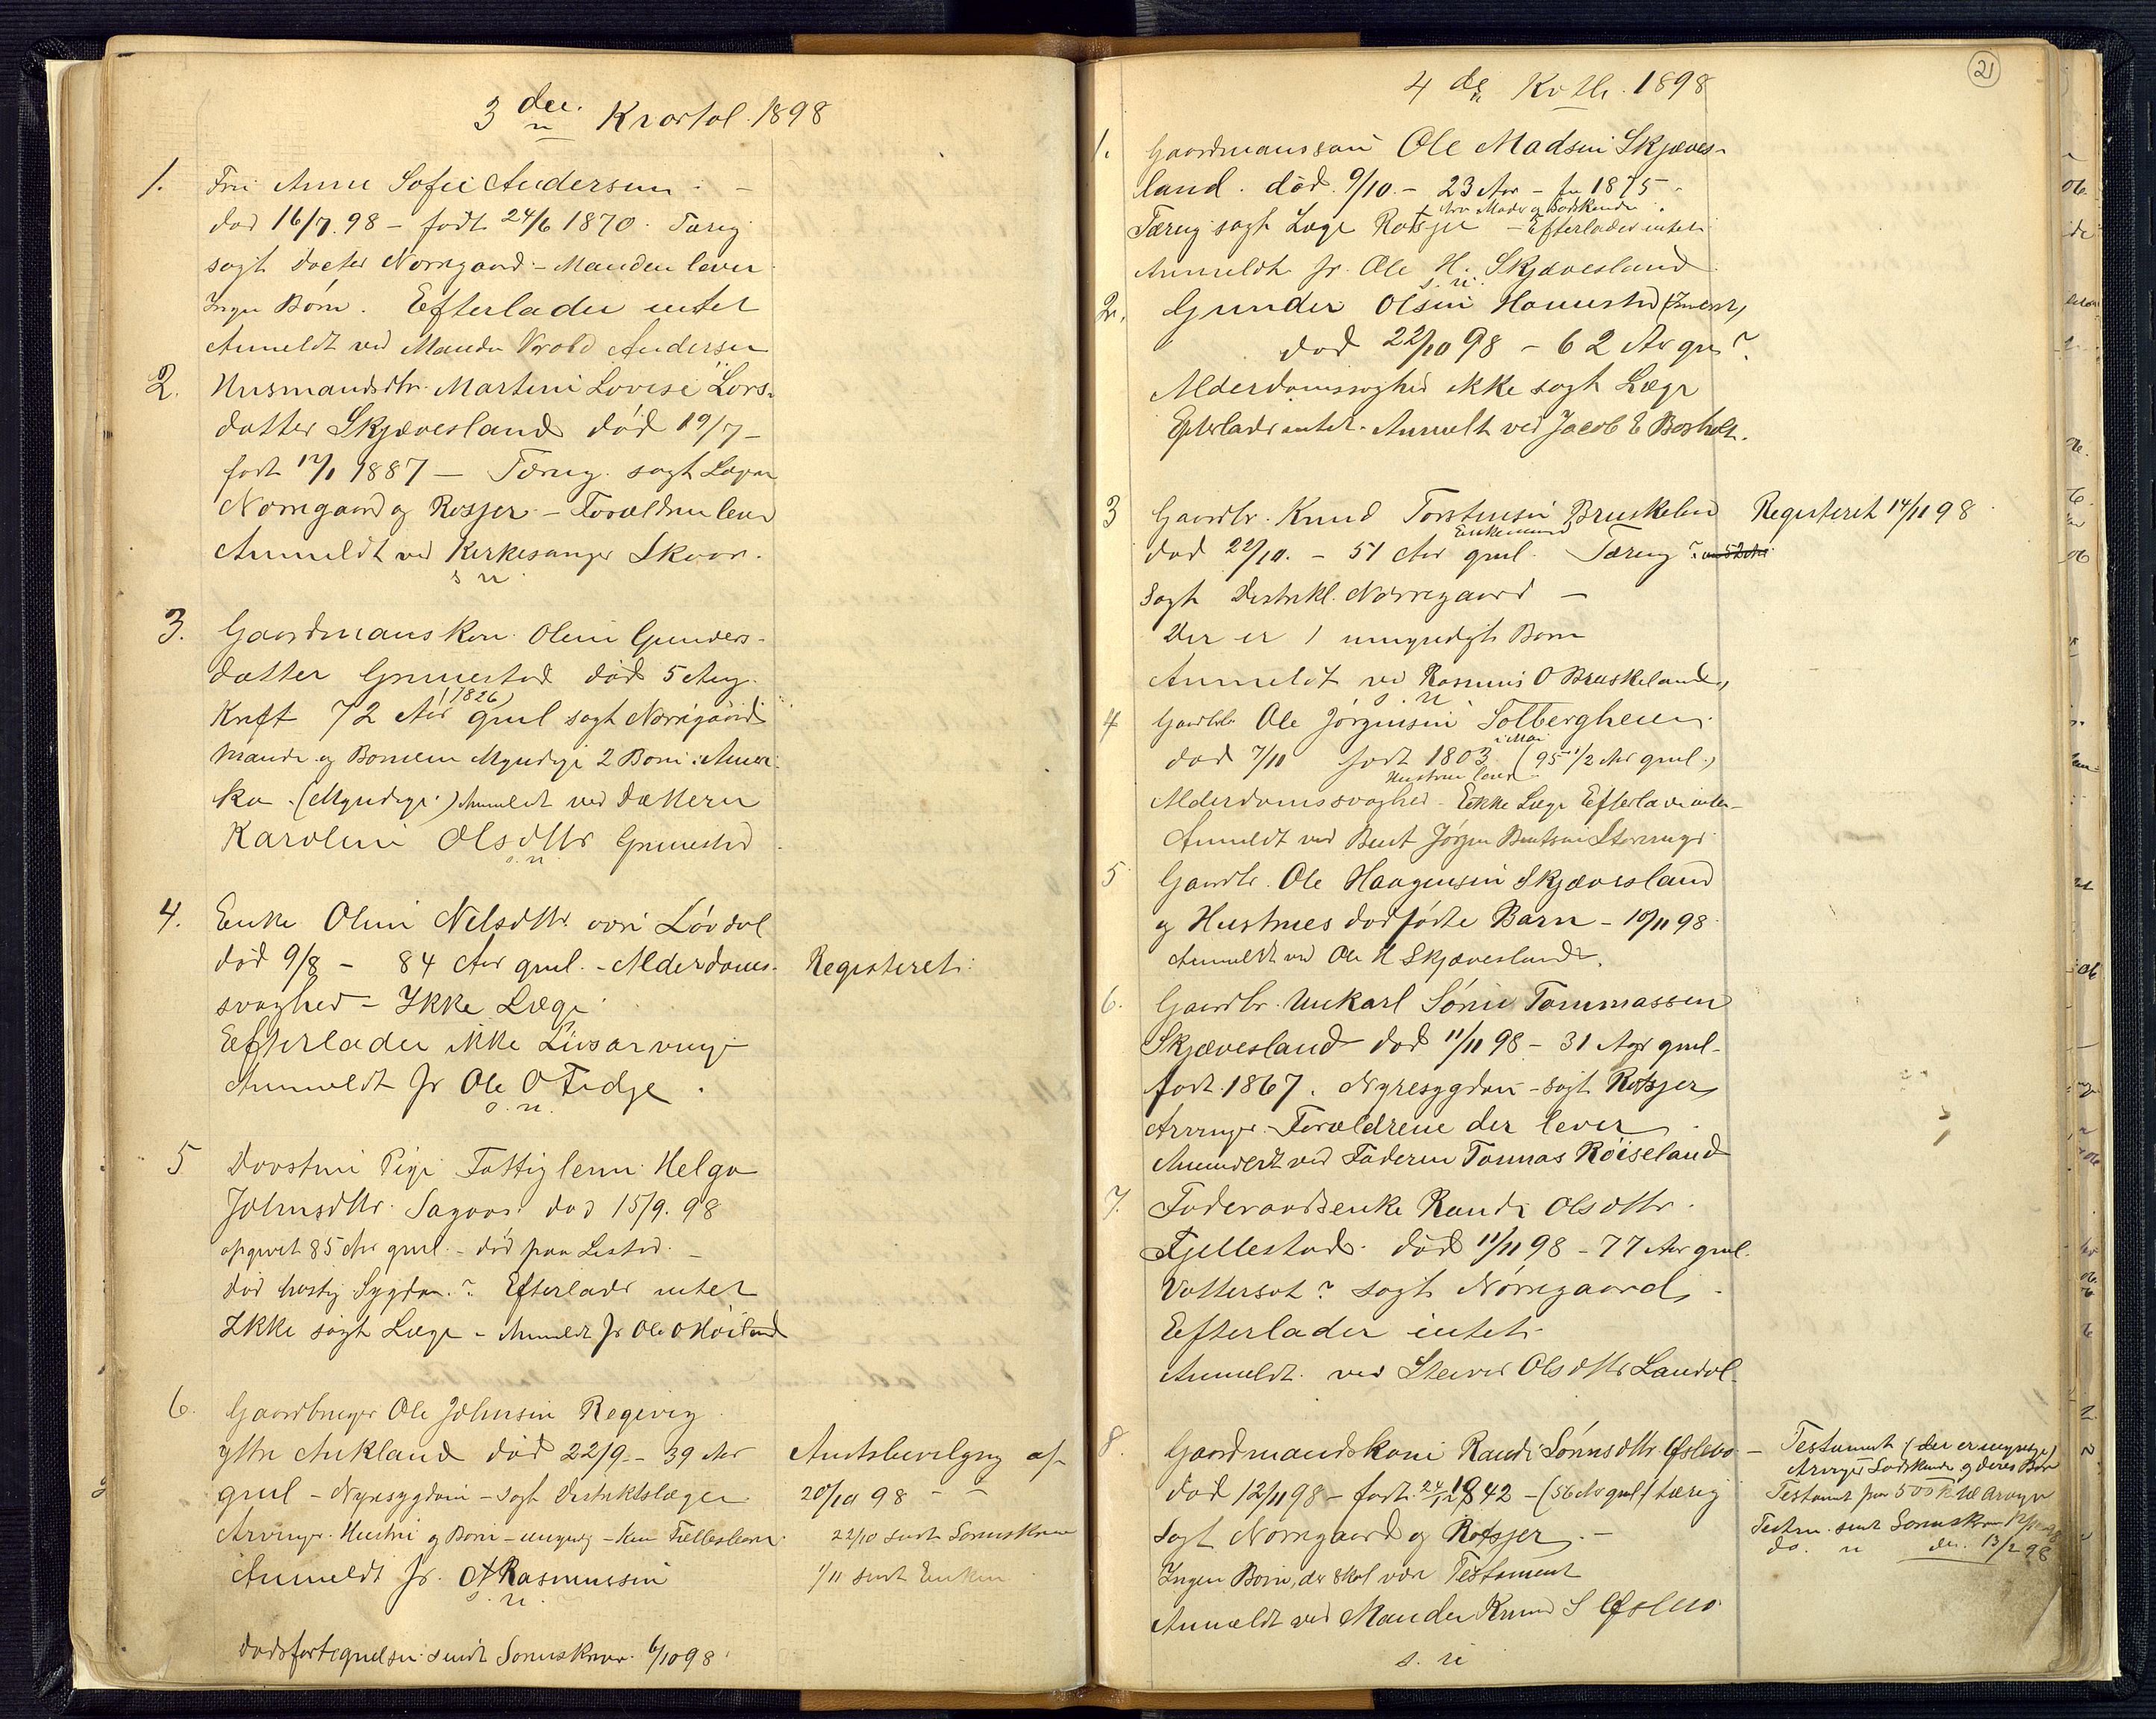 3 die Kvartal 1898
1. Fru Anne Sofie Andersen
død 16/7 98 – født 24/6 1870. Tæring
søgt Doctor Nørregaard – Manden lever
Ingen Børn. Efterlader intet
Anmeldt ved Manden Andersen
2. Husmandsdtr. Martine Lovise Lars-
datter Skjævesland død 19/7 –
født 1887 – Tæring. søgt Lægerne
Nørregaard og Rosjer – Forældrene lever
Anmeldt ved Kirkesanger Skaar.
s n
3. Gaardmanskone Oline Gunders-
datter Grimestad død 5 Aug.
Kræft 72 Aar (1826) gml søgt Nørregaard
Mand og Børnene Myndige 2 Børn i Ameri-
ka. (Myndige) Anmeldt ved Datteren
Karoline Olsdttr Grimestad
s. n.
4. Enke Oline Nilsdttr. øvre Løvdal
død 9/8 – 84 Aar gml. – Alderdoms-
svaghed – Ikke Læge
Efterlader ikke Livsarvinge
Anmeldt fr Ole O Fidje.
s. n.
Registeret
5 Pige Fattiglem Helga
Johnsdttr. død 15/9. 98
opgivet 85 Aar gml. – død paa Lestad. –
død hastig Sygdom? Efterlader intet
Ikke søgt Læge – Anmeldt fr Ole O Høiland
6. Gaardbruger Ole Johnsen Regevig
ytre Aukland død 22/9 – 39 Aar
gml – Nyresygdom – søgt Distriktslægen
Arvinger. Hustru og Børn – umyndig – kun Fællesbørn.
Anmeldt fr. A Rasmussen
s. n.
Amtsbevilgning af
20/10 98
22/10 sendt Sorenskriveren
1/11 sendt Enken
Dødsfortegnelsen sendt Sorenskriver. 6/10 98
21
4 de Kvtl. 1898
1. Gaardmanssøn Ole Madsen Skjæves-
land. død 9/10 – 23 Aar – fr 1875
har Moder og Sødskende
Tæring søgt Læge Rosjer – Efterlader intet
Anmeldt fr. Ole H. Skjævesland
s. n.
2. Gunder Olsen
død 22/10 98 – 62 Aar gml?
Alderdomssvaghed ikke søgt Læge
Efterlader intet. Anmeldt ved Jacob E
3 Gaardbr. Knud Torstensen Bruskeland
Enkemand
død 22/10. – 51 Aar gml. Tæring?
søgt Distriktl. Nørregaard –
Der er 1 umyndigt Barn
Anmeldt ved Rasmus O Bruskeland
s. n
Registeret 14/11 98
4 Gaardbr Ole Jørgensen Solbergheien
død 7/11 født i Mai 1803 (95 1/2 Aar gml.)
Hustruen lever
Alderdomssvaghed – Ikke Læge Efterlader intet –
Anmeldt ved Bent Jørgen Bentsen
5 Gaardbr. Ole Haagensen Skjævesland
og Hustrues dødfødte Barn – 10/11 98
Anmeldt ved Ole H Skjævesland.
6. Gaardbr. Unkarl Sørine Tommassen
Skjævesland død 11/11 98 – 31 Aar gml –
født 1867. Nyresygdom – søgt Rosjer
Arvinger – Forældrene der lever
Anmeldt ved Faderen Tommas Røiseland
7. Føderaadsenke Randi Olsdttr.
Fjellestad. død 11/11 98 – 77 Aar gml.
Vattersot? søgt Nørregaard.
Efterlader intet.
Anmeldt ved Olsdttr Landøl.
8. Gaardmandskone Randi Sørensdttr Øslebø
død 12/11 98 – født 24/12 1842 – (56 Aar gml) tæring
Søgt Nørregaard og Rosjer. –
Ingen Børn, der skal være Testament
Anmeldt ved Manden Knud S Øslebø
s. n
– Testament (der er umyndige)
Arvinger Sødskende og deres Børn
Testament paa 500 Kr til Arvinger
Testm. sendt Sorenskriver
do. n 13/2 98